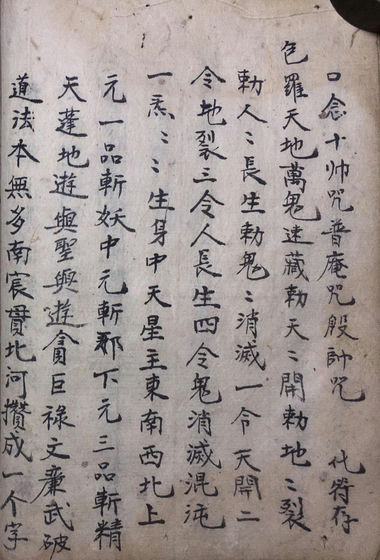 口念十帅咒普庵咒殷帥咒 化符存
包羅天地萬鬼速藏勅天〻開勅地〻裂
勅人〻長生勅鬼〻消滅一令天開二
令地裂三令人長生四令鬼消滅混沌
一炁〻〻生身中天星主東南西北上
元一品斬妖中元斬郡下元三品斬精
天蓬地遊與聖與遊貪巨祿文廉武破
道法本無多南宸貫北河攢成一个字